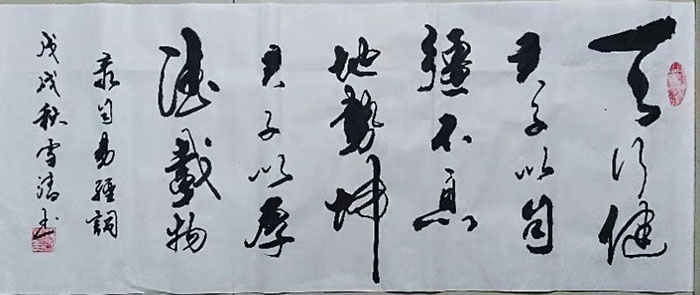 天行健
君子以自
彊不息
地勢坤
君子以厚
德載物
录自易經詞
戊戌秋雪清书